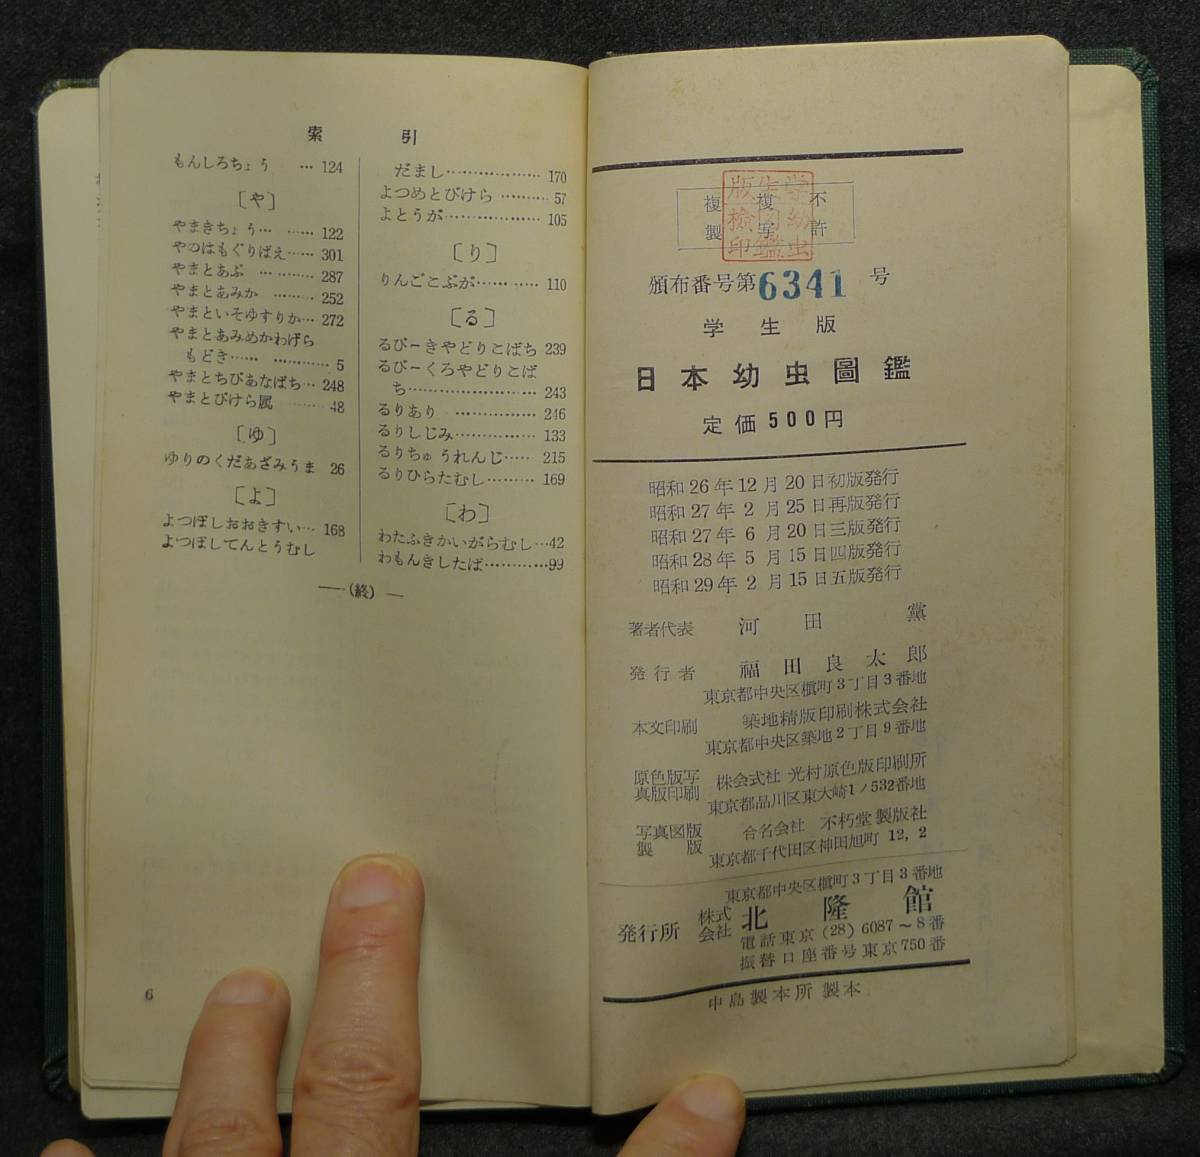 索引
もんしろちょう … 124
[や]
やまきちょう… …… 122
やのはもぐりばえ…… 301
やまとあぶ ………… 287
やまとあみか ……… 252
やまといそゆすりか… 272
やまとあみめかわげら
もどき…… ………… 5
やまとちびあなばち… 248
やまとびけら属 ……… 48
[ゆ]
ゆりのくだあざみうま 26
[よ]
よつぼしおおきすい… 168
よつぼしてんとうむし
だまし……………… 170
よつめとびけら …… 57
よとうが……………… 105
[り]
りんごこぶが………… 110
[る]
るびーきやどりこばち 239
るびーくろやどりこば
ち…………………… 243
るりあり …………… 246
るりしじみ…………… 133
るりちゅうれんじ…… 215
るりひらたむし……… 169
[わ]
わたふきかいがらむし…42
わもんきしたば…………99
――(終)―
6
不許
複写
複製
学生版
幼虫図鑑
検印
頒布番号第6341号
学生版
日本幼虫圖鑑
定価500円
昭和26年12月20日初版発行
昭和27年2月25日再版発行
昭和27年6月20日三版発行
昭和28年5月15日四版発行
昭和29年2月15日五版発行
著者代表 河田黨
発行者 福田良太郎
東京都中央区槇町3丁目3番地
本文印刷 築地精版印刷株式会社
東京都中央区築地2丁目9番地
原色版写真版印刷 株会式社 光村原色版印刷所
東京都品川区東大崎1ノ532番地
写真図版製版 合名会社 不朽堂製版社
東京都千代田区神田旭町12,2
東京都中央区槇町3丁目3番地
発行所 株式会社 北隆館
電話東京(28)6087〜8番
振替口座番号東京750番
中島製本所製本